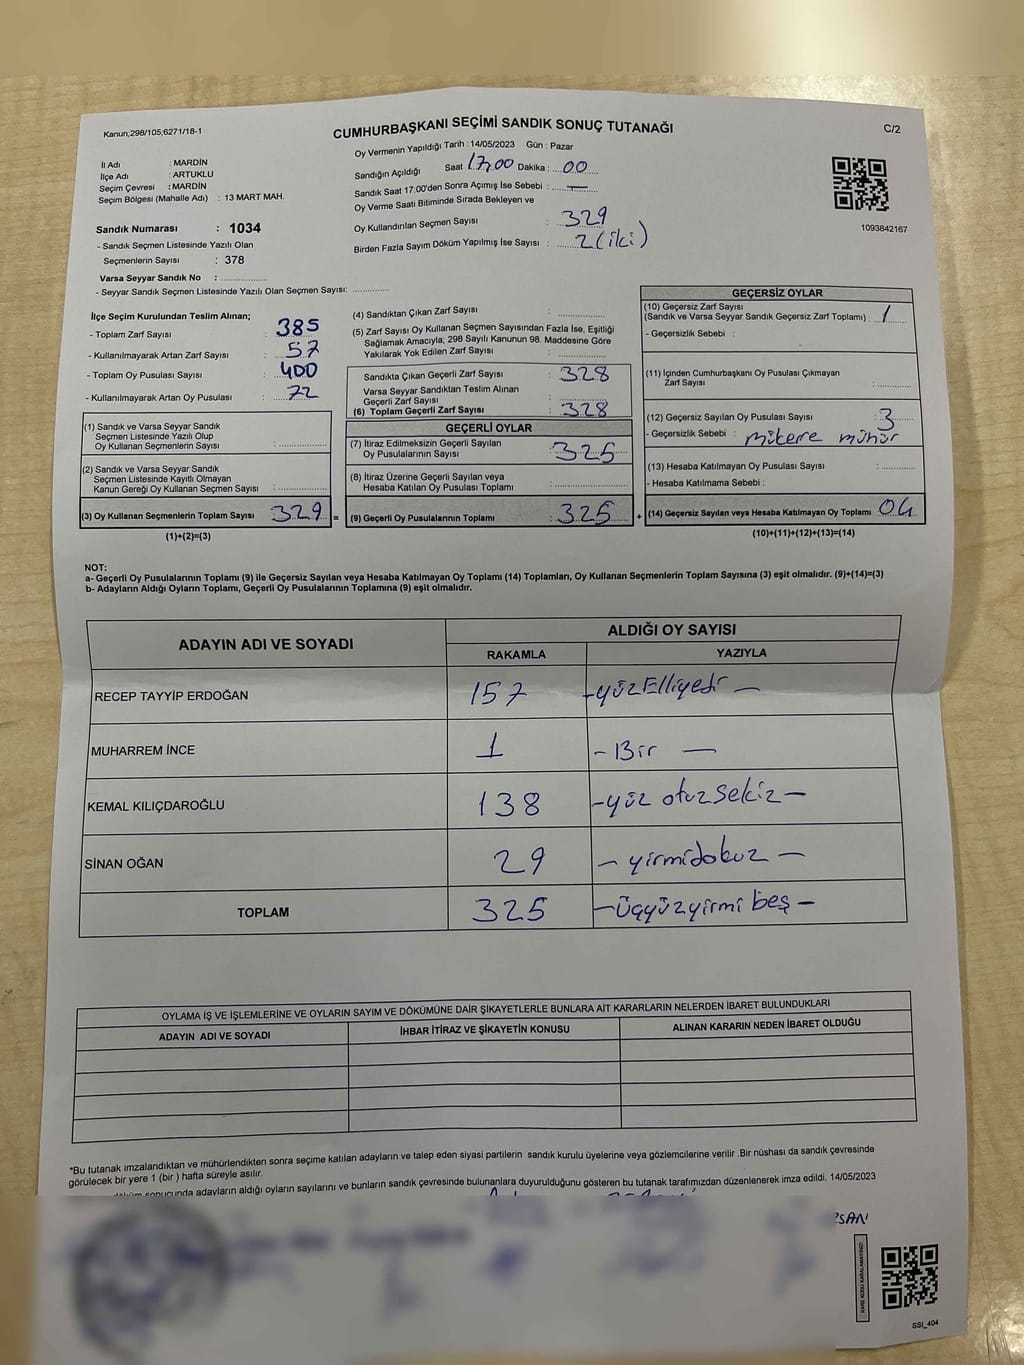 Kanun;298/105;6271/18-1
CUMHURBAŞKANI SEÇİMİ SANDIK SONUÇ TUTANAĞI
C/2
İl Adı : MARDİN
İlçe Adı : ARTUKLU
Seçim Çevresi : MARDİN
Seçim Bölgesi (Mahalle Adı) : 13 MART MAH.
Sandık Numarası : 1034
- Sandık Seçmen Listesinde Yazılı Olan
Seçmenlerin Sayısı : 378
Varsa Seyyar Sandık No :
- Seyyar Sandık Seçmen Listesinde Yazılı Olan Seçmen Sayısı:
Oy Vermenin Yapıldığı Tarih : 14/05/2023 Gün : Pazar
Sandığın Açıldığı Saat 17,00 Dakika : 00
Sandık Saat 17:00'den Sonra Açımış İse Sebebi : —
Oy Verme Saati Bitiminde Sırada Bekleyen ve
Oy Kullandırılan Seçmen Sayısı : 329
Birden Fazla Sayım Döküm Yapılmış İse Sayısı : 2 (iki)
1093842167
İlçe Seçim Kurulundan Teslim Alınan;
- Toplam Zarf Sayısı : 385
- Kullanılmayarak Artan Zarf Sayısı : 57
- Toplam Oy Pusulası Sayısı : 400
- Kullanılmayarak Artan Oy Pusulası : 72
(1) Sandık ve Varsa Seyyar Sandık
Seçmen Listesinde Yazılı Olup
Oy Kullanan Seçmenlerin Sayısı :
(2) Sandık ve Varsa Seyyar Sandık
Seçmen Listesinde Kayıtlı Olmayan
Kanun Gereği Oy Kullanan Seçmen Sayısı :
(3) Oy Kullanan Seçmenlerin Toplam Sayısı : 329 =
(1)+(2)=(3)
(4) Sandıktan Çıkan Zarf Sayısı :
(5) Zarf Sayısı Oy Kullanan Seçmen Sayısından Fazla İse, Eşitliği
Sağlamak Amacıyla; 298 Sayılı Kanunun 98. Maddesine Göre
Yakılarak Yok Edilen Zarf Sayısı :
Sandıkta Çıkan Geçerli Zarf Sayısı : 328
Varsa Seyyar Sandıktan Teslim Alınan
Geçerli Zarf Sayısı :
(6) Toplam Geçerli Zarf Sayısı : 328
GEÇERLİ OYLAR
(7) İtiraz Edilmeksizin Geçerli Sayılan
Oy Pusulalarının Sayısı : 325
(8) İtiraz Üzerine Geçerli Sayılan veya
Hesaba Katılan Oy Pusulası Toplamı :
(9) Geçerli Oy Pusulalarının Toplamı : 325 +
GEÇERSİZ OYLAR
(10) Geçersiz Zarf Sayısı
(Sandık ve Varsa Seyyar Sandık Geçersiz Zarf Toplamı) : 1
- Geçersizlik Sebebi :
(11) İçinden Cumhurbaşkanı Oy Pusulası Çıkmayan
Zarf Sayısı :
(12) Geçersiz Sayılan Oy Pusulası Sayısı : 3
- Geçersizlik Sebebi : mükere mühür
(13) Hesaba Katılmayan Oy Pusulası Sayısı :
- Hesaba Katılmama Sebebi :
(14) Geçersiz Sayılan veya Hesaba Katılmayan Oy Toplamı : 04
(10)+(11)+(12)+(13)=(14)
NOT:
a- Geçerli Oy Pusulalarının Toplamı (9) ile Geçersiz Sayılan veya Hesaba Katılmayan Oy Toplamı (14) Toplamları, Oy Kullanan Seçmenlerin Toplam Sayısına (3) eşit olmalıdır. (9)+(14)=(3)
b- Adayların Aldığı Oyların Toplamı, Geçerli Oy Pusulalarının Toplamına (9) eşit olmalıdır.
ADAYIN ADI VE SOYADI
ALDIĞI OY SAYISI
RAKAMLA YAZIYLA
RECEP TAYYİP ERDOĞAN 157 -yüzElliyedi —
MUHARREM İNCE 1 - Bir —
KEMAL KILIÇDAROĞLU 138 -yüz otuzsekiz-
SİNAN OĞAN 29 - yirmidokuz -
TOPLAM 325 -üçyüzyirmi beş-
OYLAMA İŞ VE İŞLEMLERİNE VE OYLARIN SAYIM VE DÖKÜMÜNE DAİR ŞİKAYETLERLE BUNLARA AİT KARARLARIN NELERDEN İBARET BULUNDUKLARI
ADAYIN ADI VE SOYADI İHBAR İTİRAZ VE ŞİKAYETİN KONUSU ALINAN KARARIN NEDEN İBARET OLDUĞU
*Bu tutanak imzalandıktan ve mühürlendikten sonra seçime katılan adayların ve talep eden siyasi partilerin sandık kurulu üyelerine veya gözlemcilerine verilir .Bir nüshası da sandık çevresinde
görülecek bir yere 1 (bir ) hafta süreyle asılır.
sonucunda adayların aldığı oyların sayılarını ve bunların sandık çevresinde bulunanlara duyurulduğunu gösteren bu tutanak tarafımızdan düzenlenerek imza edildi. 14/05/2023
KARE KODU KARALAMAYINIZ!
SSİ_404